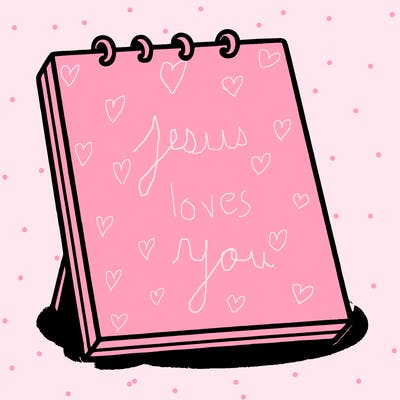 Jesus
loves
You